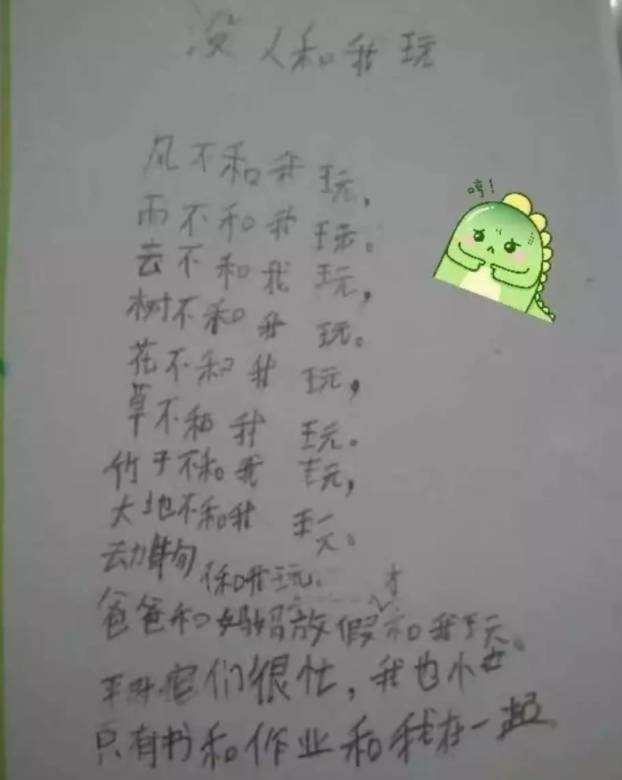 没人和我玩
哼!
风不和我玩,
雨不和我玩。
云不和我玩,
树不和我玩。
花不和我玩,
草不和我玩。
竹子不和我玩,
大地不和我玩。
动物 和我玩.
才
爸爸和妈妈放假和我玩。
平时 们很忙,我也
只有书和作业和我在一起